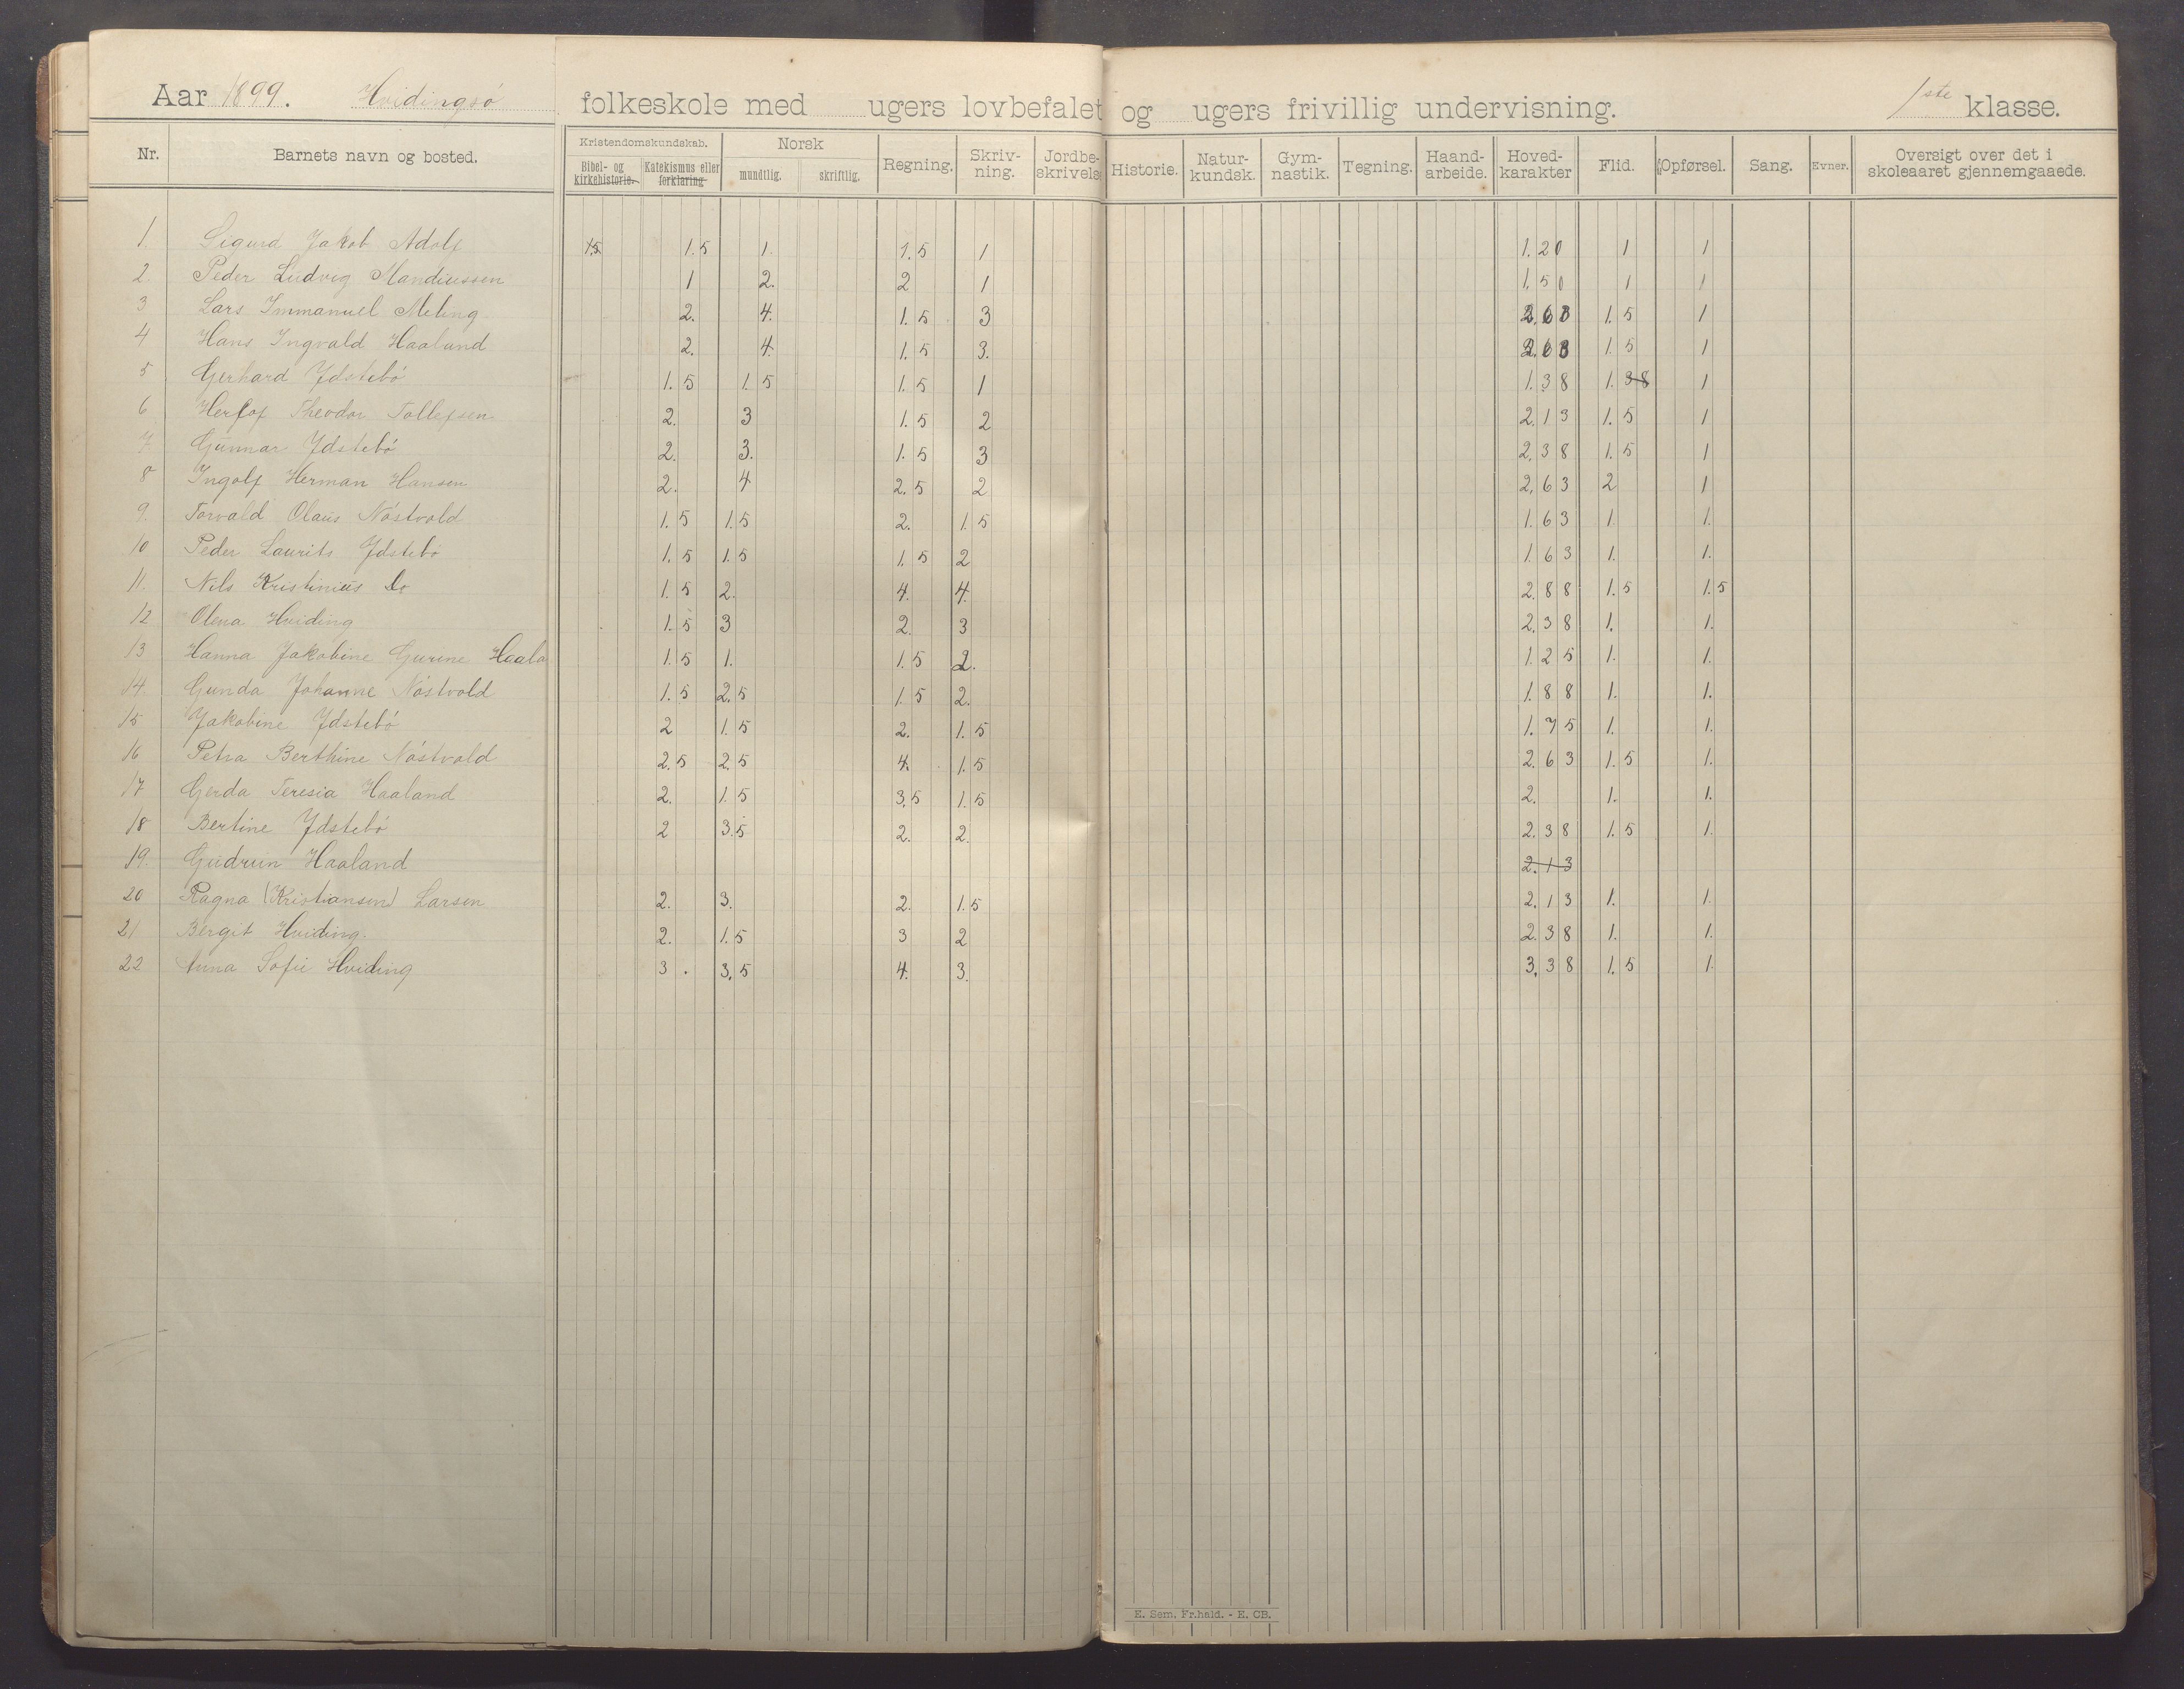 Aar 1899. Hvidingsö folkeskole med ugers lovbefalet og ugers frivillig undervisning. 1ste klasse.
Nr. Barnets navn og bosted. Kristendomskundskab. Bibel- og kirkehistorie. Katekismus eller forklaring Norsk mundtlig. skriftlig. Regning. Skriv-ning. Jordbe-skrivelse Historie. Natur-kundsk. Gym-nastik. Tegning. Haand-arbeide. Hoved-karakter Flid. Opførsel. Sang. Evner. Oversigt over det i skoleaaret gjennemgaaede.
1. Sigurd Jakob Adolf 1.5 1.5 1. 1.5 1 1.20 1 1
2. Peder Ludvig Mandiussen 1 2. 2 1 1.50 1 1
3 Lars Immanuel Meling. 2. 4. 1.5 3 2.63 1.5 1
4 Hans Ingvald Haaland 2. 4. 1.5 3. 2.63 1.5 1
5 Gerhard Ydstebö 1.5 1.5 1.5 1 1.38 1.38 1
6 Herlof Theodor Tollefsen. 2. 3 1.5 2 2.13 1.5 1
7. Gunnar Ydstebö 2. 3. 1.5 3 2.38 1.5 1
8 Ingolf Herman Hansen 2. 4 2.5 2 2.63 2 1
9. Torvald Olaus Nöstvold 1.5 1.5 2. 1.5 1.63 1. 1.
10 Peder Laurits Ydstebö 1.5 1.5 1.5 2 1.63 1. 1.
11. Nils Kristinius Do 1.5 2. 4. 4. 2.88 1.5 1.5
12 Olena Hviding 1.5 3 2. 3 2.38 1. 1.
13 Hanna Jakobine Gurine Haala 1.5 1. 1.5 2. 1.25 1. 1.
14. Gunda Johanne Nöstvold 1.5 2.5 1.5 2. 1.88 1. 1.
15 Jakobine Ydstebö 2 1.5 2. 1.5 1.75 1. 1.
16 Petra Berthine Nöstvold 2.5 2.5 4. 1.5 2.63 1.5 1.
17 Gerda Teresia Haaland 2. 1.5 3.5 1.5 2. 1. 1.
18 Bertine Ydstebö 2 3.5 2. 2. 2.38 1.5 1.
19. Gudrun Haaland 2.13
20 Ragna (Kristiansen) Larsen 2. 3. 2. 1.5 2.13 1. 1.
21 Bergit Hviding. 2. 1.5 3 2 2.38 1. 1.
22 Anna Sofie Hviding 3. 3.5 4. 3. 3.38 1.5 1.
E. Sem, Fr.hald. - E. CB.